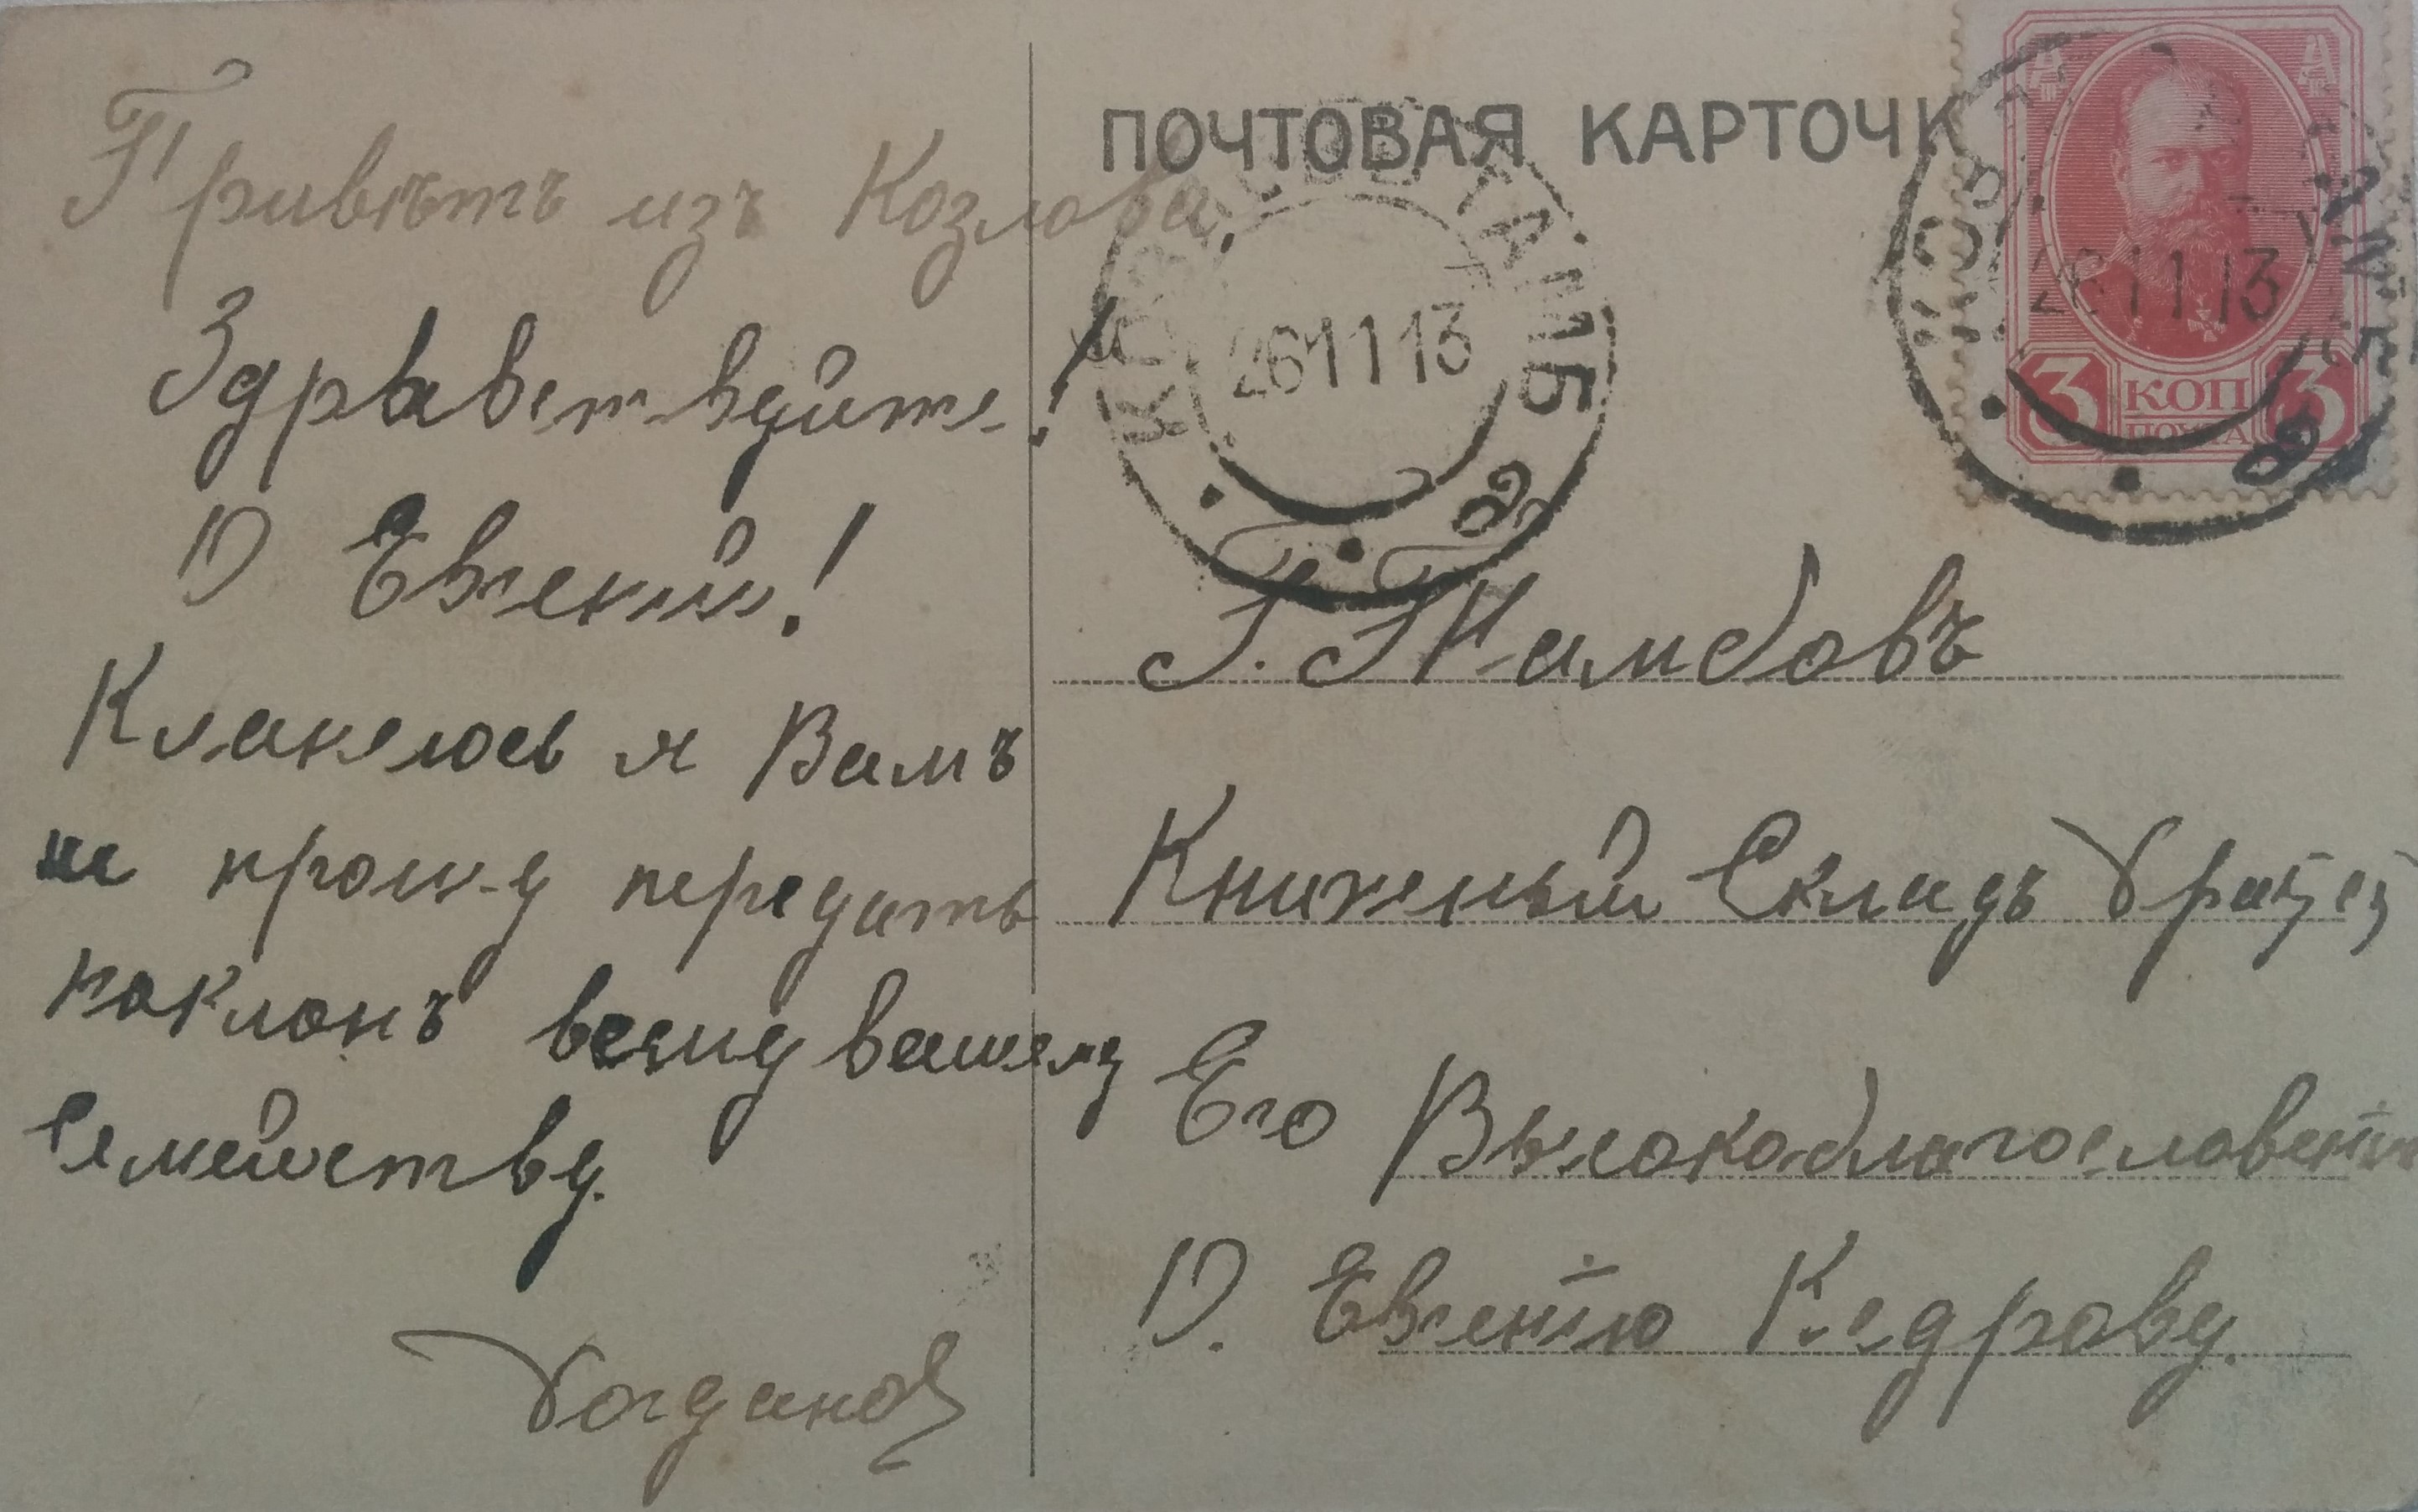 Привѣтъ изъ Козлова.
Здравствуйте!
О Евгеній!
Кланеюсь я Вамъ
и прошу передать
поклонъ всему вашему
Семейству.
Богданов
ПОЧТОВАЯ КАРТОЧК
КОЗЛОВЪ ТАМБ
26 11 13
в
26 11 13
в
3 КОП 3
ПОЧТА
Г. Тамбовъ
Книжный Складъ Братцу
Его Высокоблагословен
О. Евгенію Кедрову.